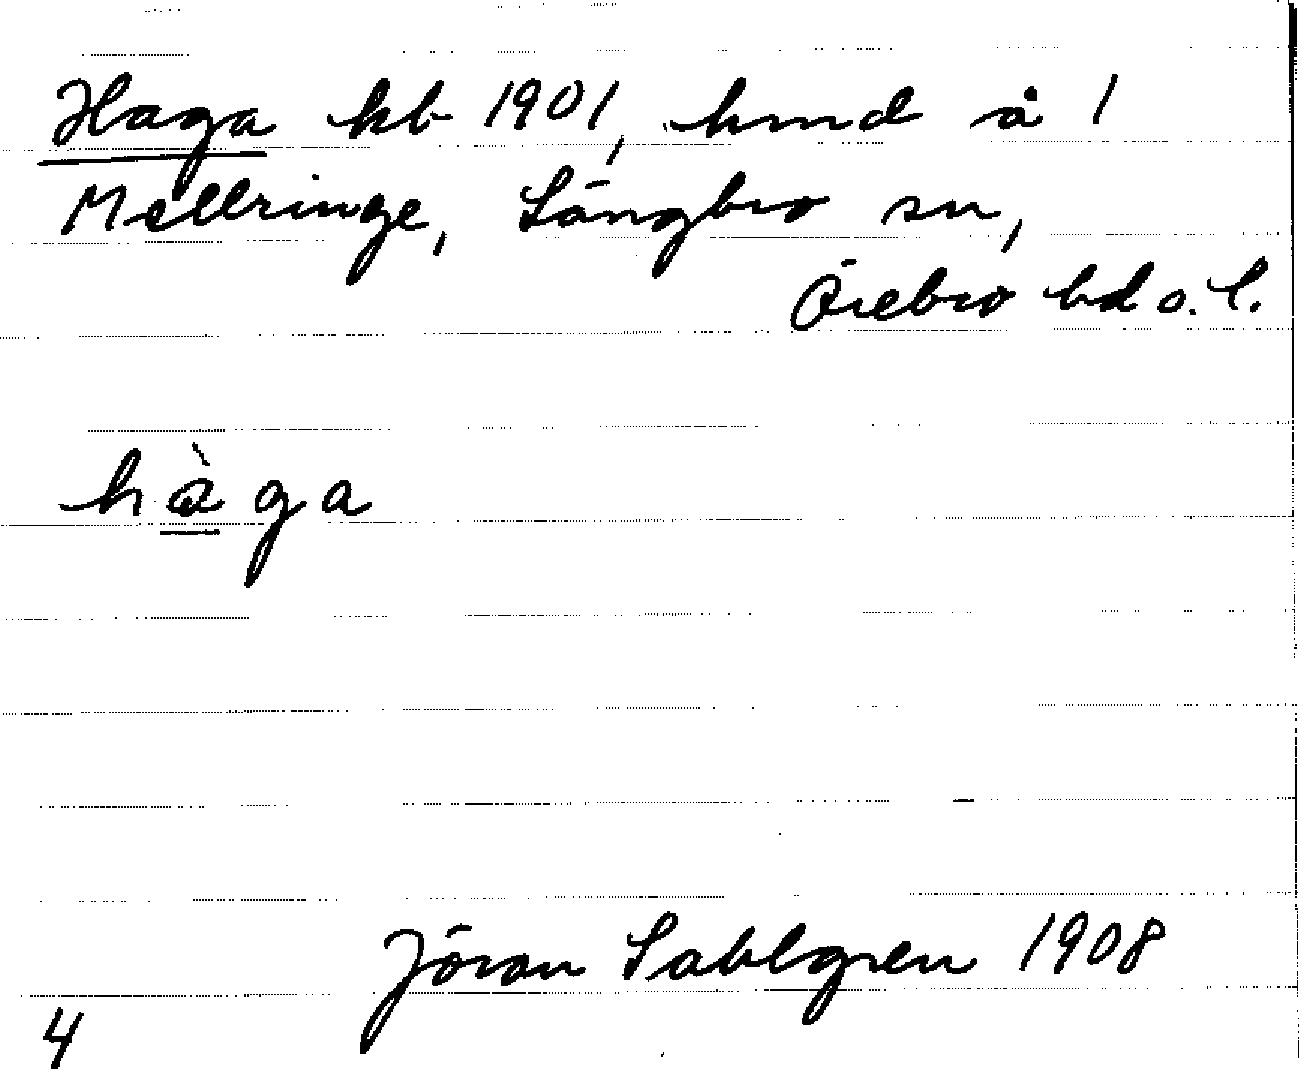 Haga kb 1901, hmd å 1
Mellringe, Längbro sn,
Örebro hd o. l.
hàga
Jöran Sahlgren 1908
4